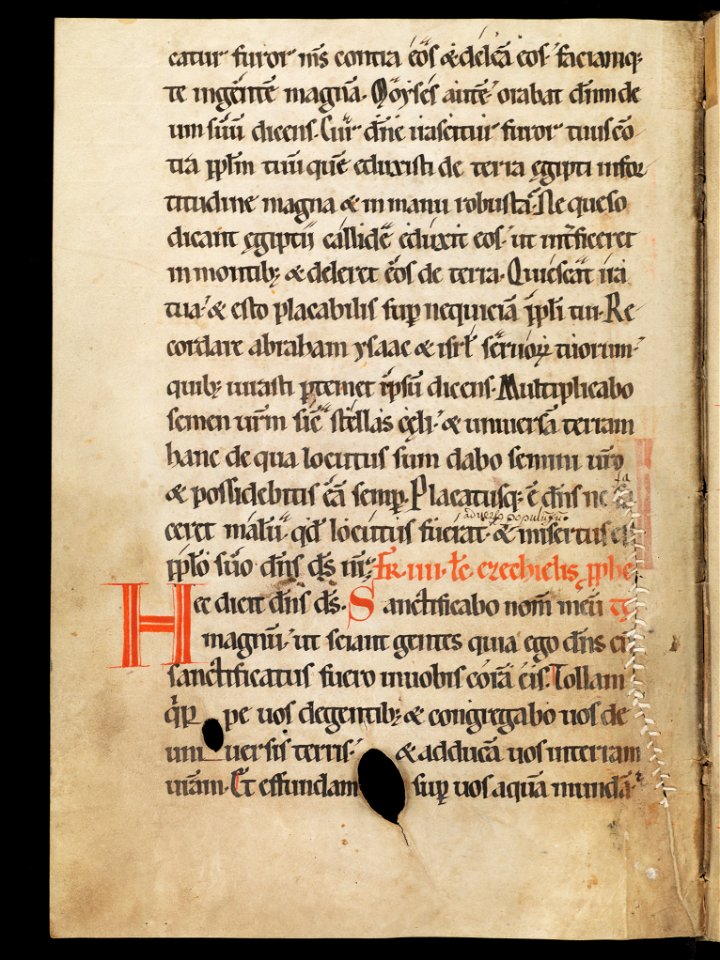 catur furor m̅s contra eos & delea̅ eos. faciamq;
te in gente̅ magna̅. Moyses aute̅ orabat dn̅m de
um suu̅ dicens. Cur dn̅e irascitur furor tuus co̅
tra pplm̅ tuu̅ que̅ eduxisti de terra ęgipti in for
titudine magna & in manu robusta. Ne queso
dicant ęgiptii callide̅ eduxit eos. ut int̅ficeret
in montib; & deleret eos de terra. Quiescat ira
tua. & esto placabilis sup̲ nequicia̅ ppli̅ tui. Re
cordare abraham ysaac & isrl̅ seruoꝝ tuorum.
quib; iurasti p̲ temet ipsu̅ dicens. Multiplicabo
semen ur̅m sic̅ stellas cęli. & uniuersa̅ terram
hanc de qua locutus sum dabo semini ur̅o
& possidebitis ea̅ semp̲. Placatusq; e̅ dn̅s ne fa
ceret malu̅. qd̅ locutus fuerat aduersu̅ populu̅ suu̅. & misertus est
pplo̅ suo dn̅s ds̅ nr̅. Fr. iiii. Lc̅ ezechielis p̲phe
Hec dicit dn̅s ds̅. Sanctificabo nom̅ meu̅
magnu̅. ut sciant gentes quia ego dn̅s cu̅
sanctificatus fuero in uobis cora̅ eis. Tollam
q̇pe uos de gentib; & congregabo uos de
uniuersis terris. & adduca̅ uos in terram
ur̅am. Et effundam sup̲ uos aqua̅ munda̅.